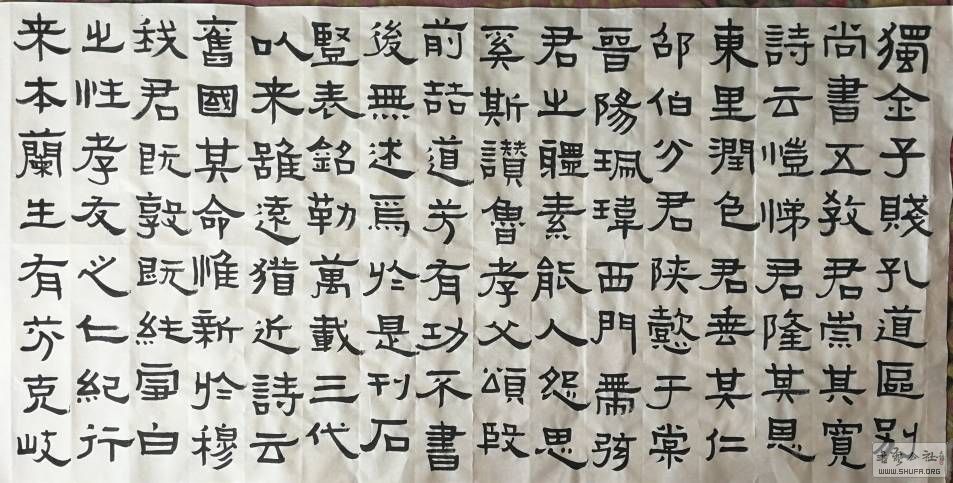 獨金子賤孔道區別
尚書五教君崇其寬
詩云愷悌君隆其恩
東里潤色君垂其仁
邵伯分君陝懿于棠
晉陽珮瑋西門帶弦
君之體素能人怨思
奚斯讚魯孝父頌殷
前喆道芳有功不書
後無述焉於是刊石
豎表銘勒萬載三代
以来雖遠猶近詩云
舊國其命惟新於穆
我君既敦既純雪白
之性孝友之仁紀行
来本蘭生有芬克岐
WWW.SHUFA.ORG